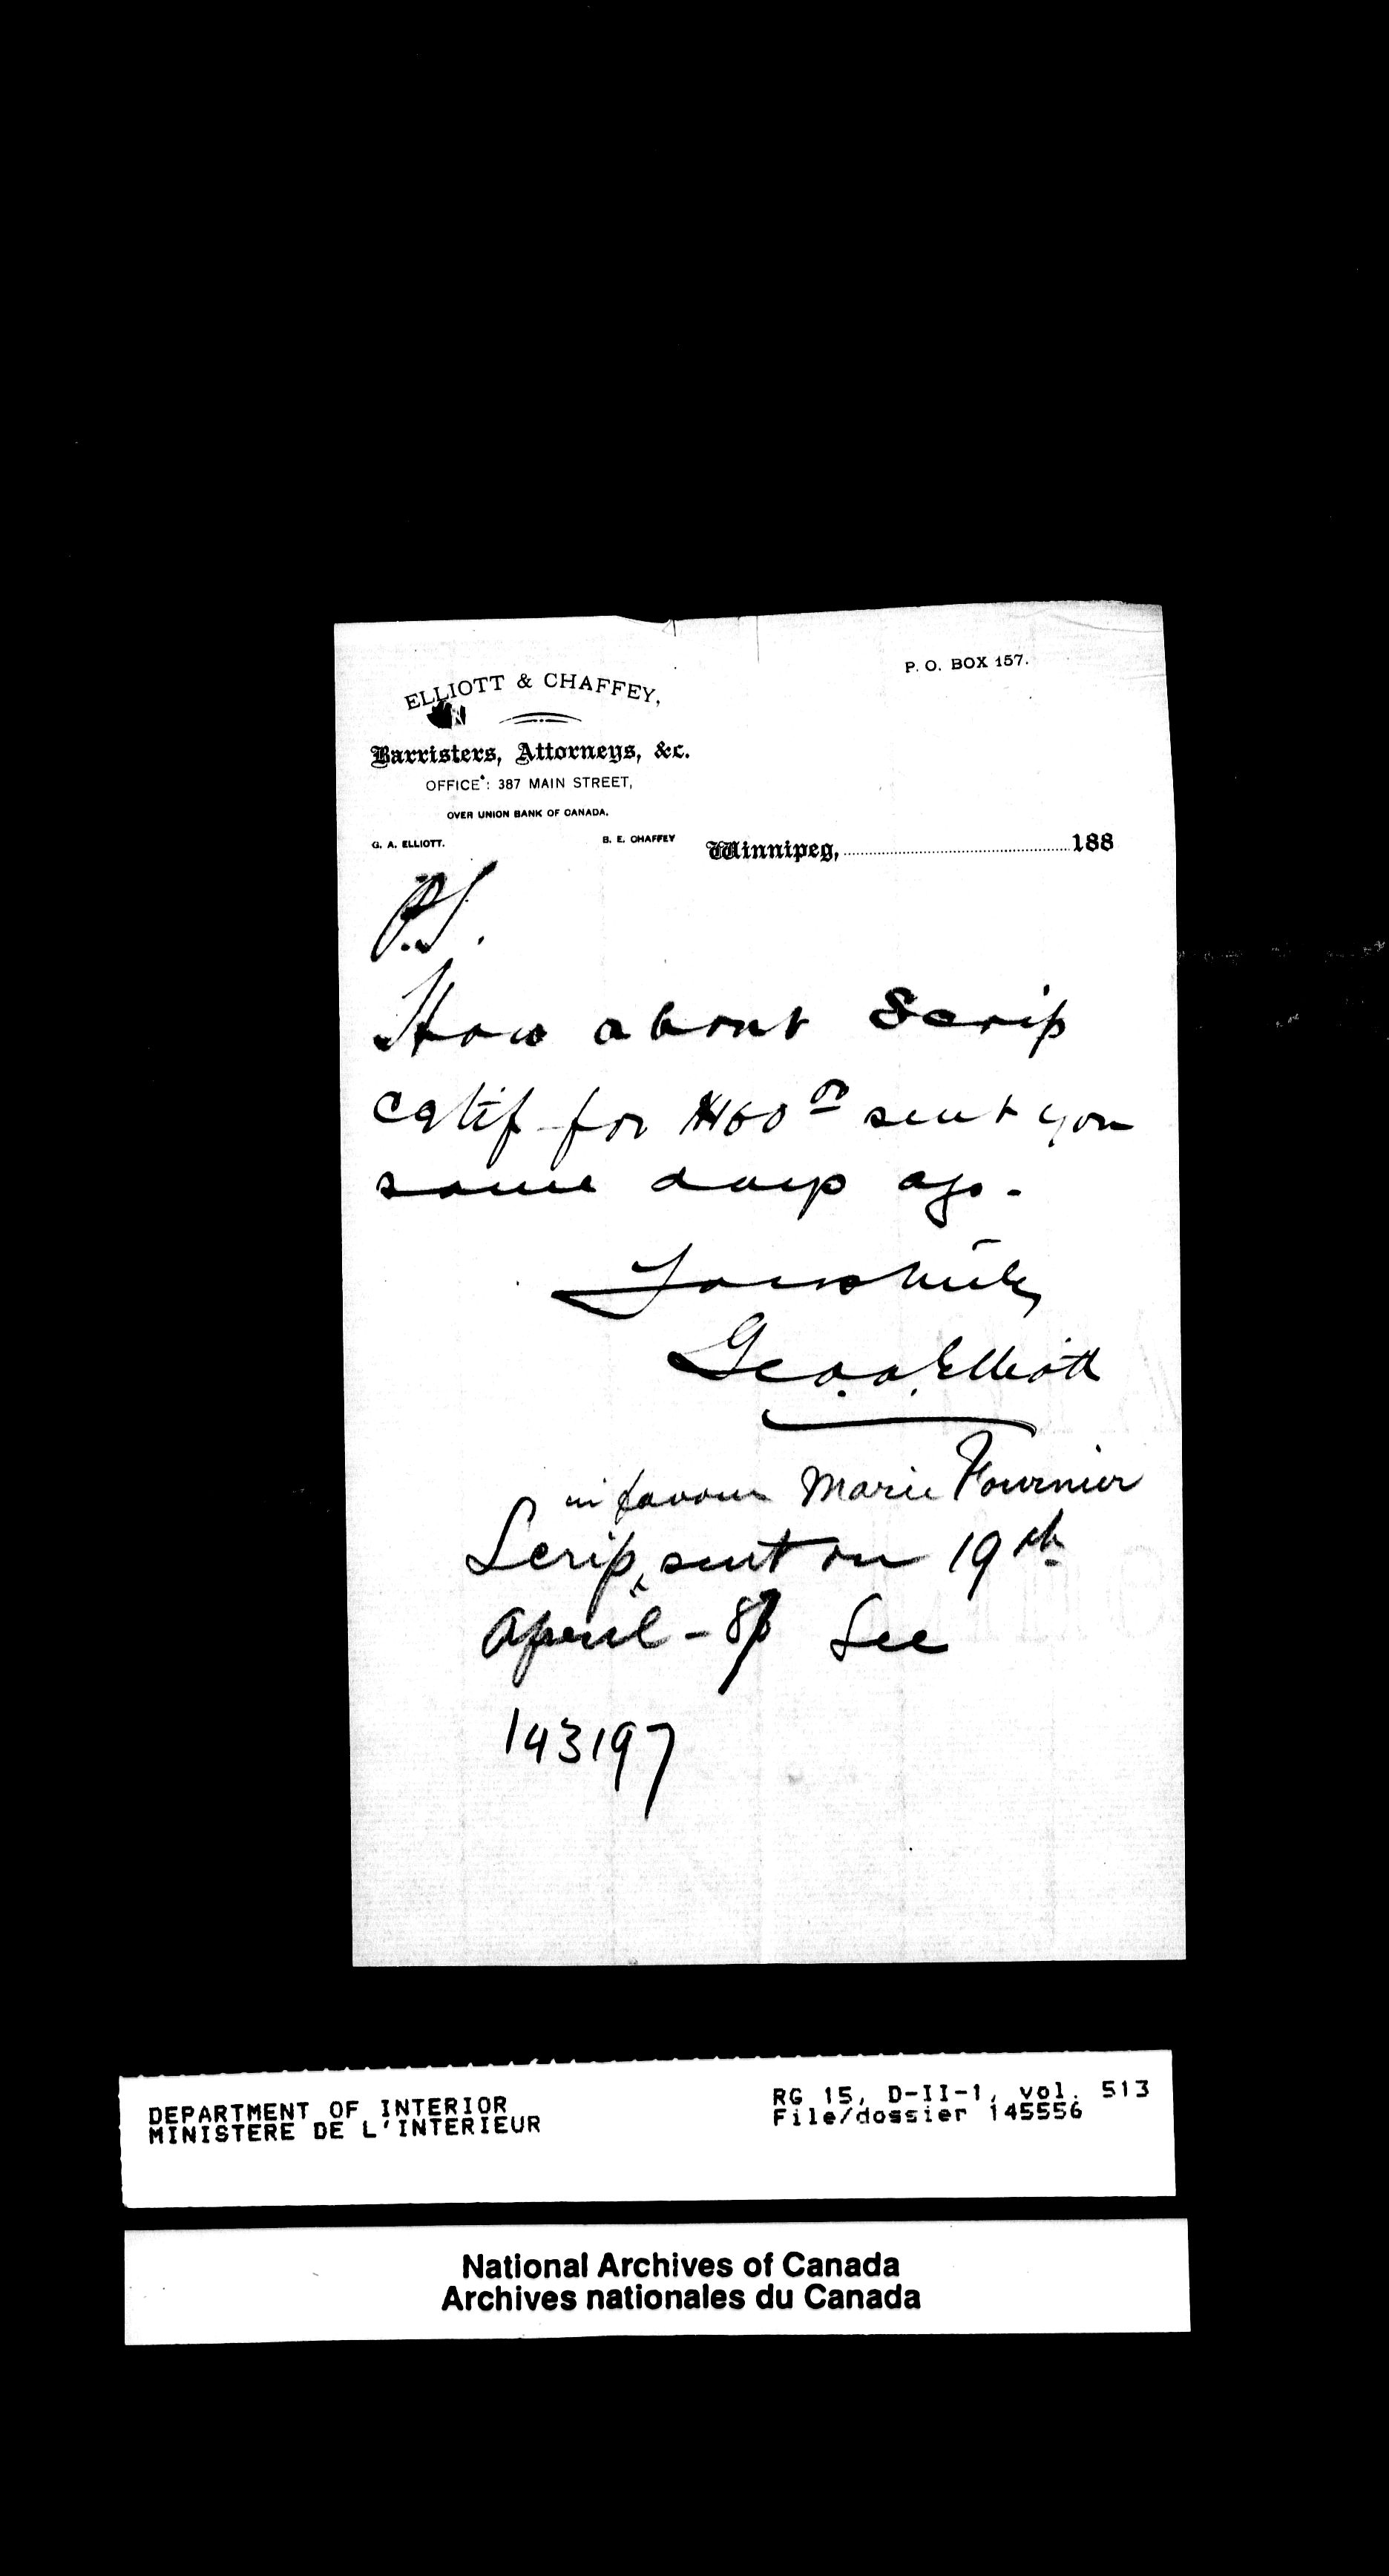 P. O. BOX 157.
ELLIOTT & CHAFFEY,
Barristers, Attorneys, &c.
OFFICE: 387 MAIN STREET,
OVER UNION BANK OF CANADA.
G. A. ELLIOTT. B. E. CHAFFEY
Winnipeg, 188
P.S.
How about Scrip
for $160 00 sent you
some days ago.
Yours truly
Geo. A. Elliott
in favour Marie Fournier
Scrip sent on 19th
April - 87 See
143197
DEPARTMENT OF INTERIOR
MINISTERE DE L'INTERIEUR
RG 15, D-II-1, vol. 513
File/dossier 145556
National Archives of Canada
Archives nationales du Canada